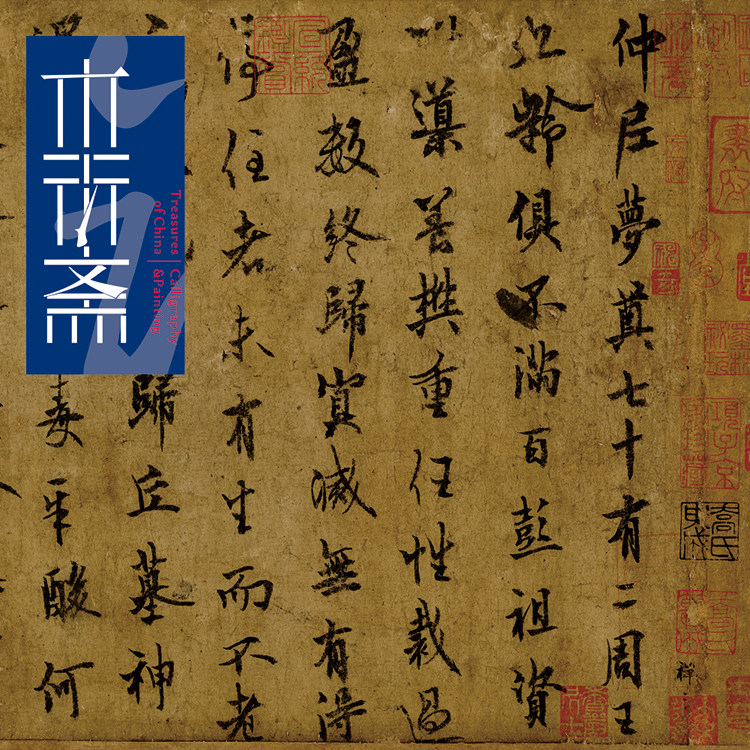 仲尼夢奠七十有二周王
九齡俱不滿百彭祖資
以導養樊重任性裁過
盈數終歸冥滅無有得
停住者未有生而不老
歸丘墓神
毒辛酸何
Treasures | Calligraphy
of China | &Painting